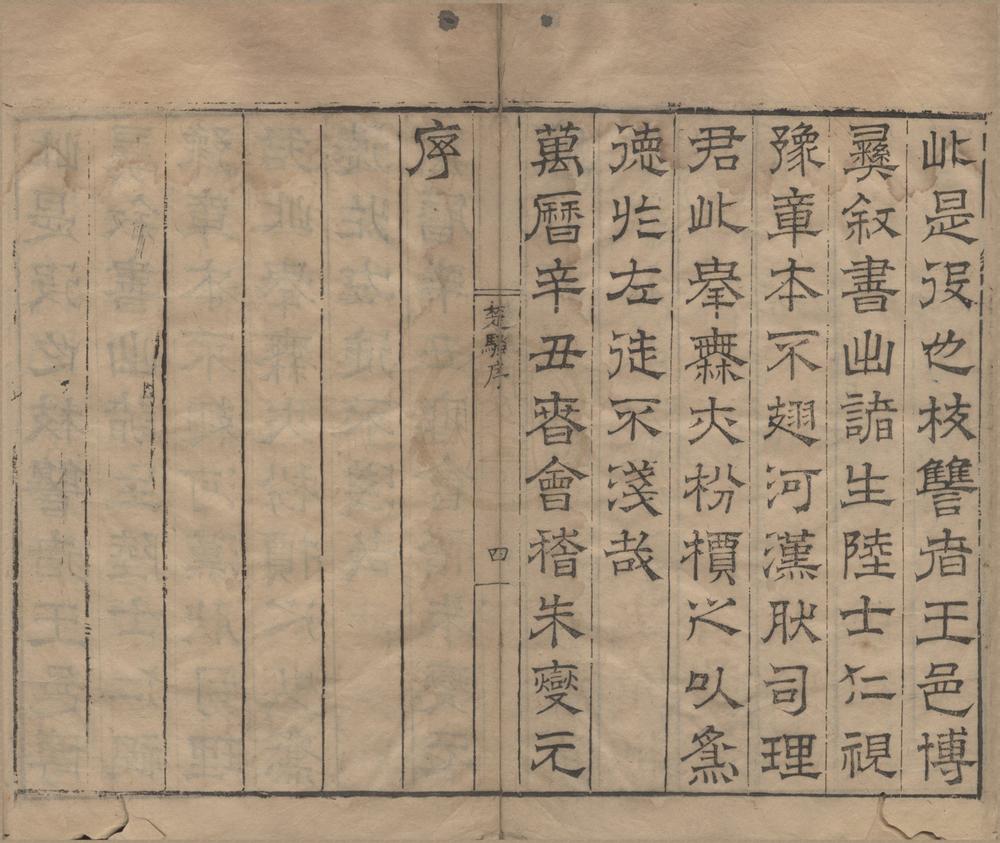 此是役也校讐者王邑博
彛叙書出諸生陸士仁視
豫章本不翅河漢耿司理
君此舉無亦枌檟之以為
德於左徒不淺哉
萬曆辛丑春會稽朱燮元
楚騷序
四
序